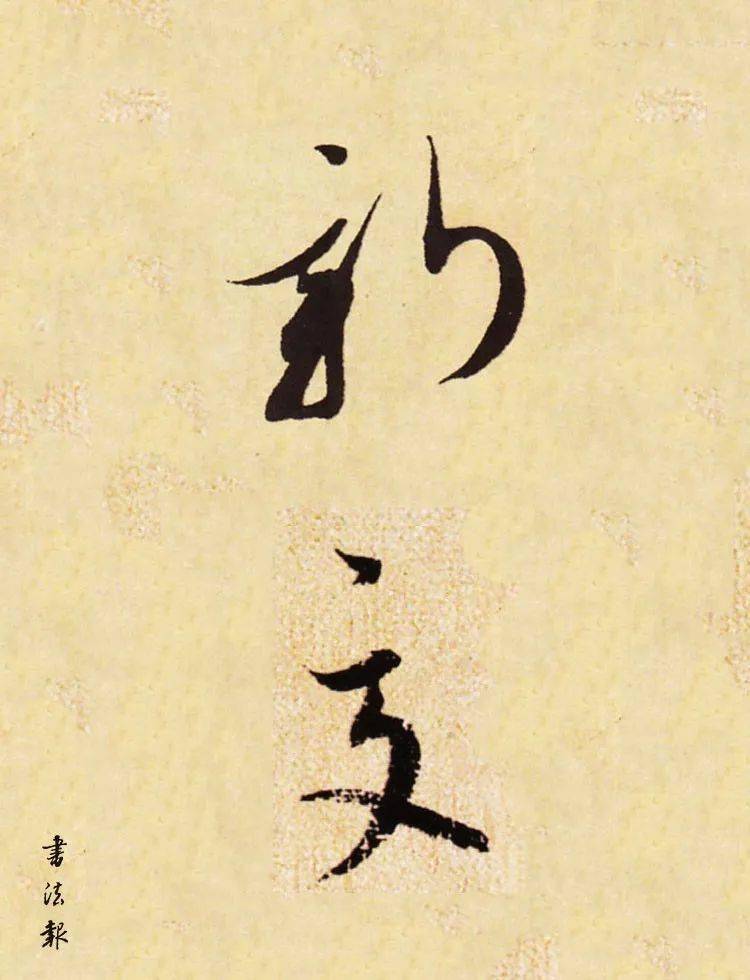 新文
書法報